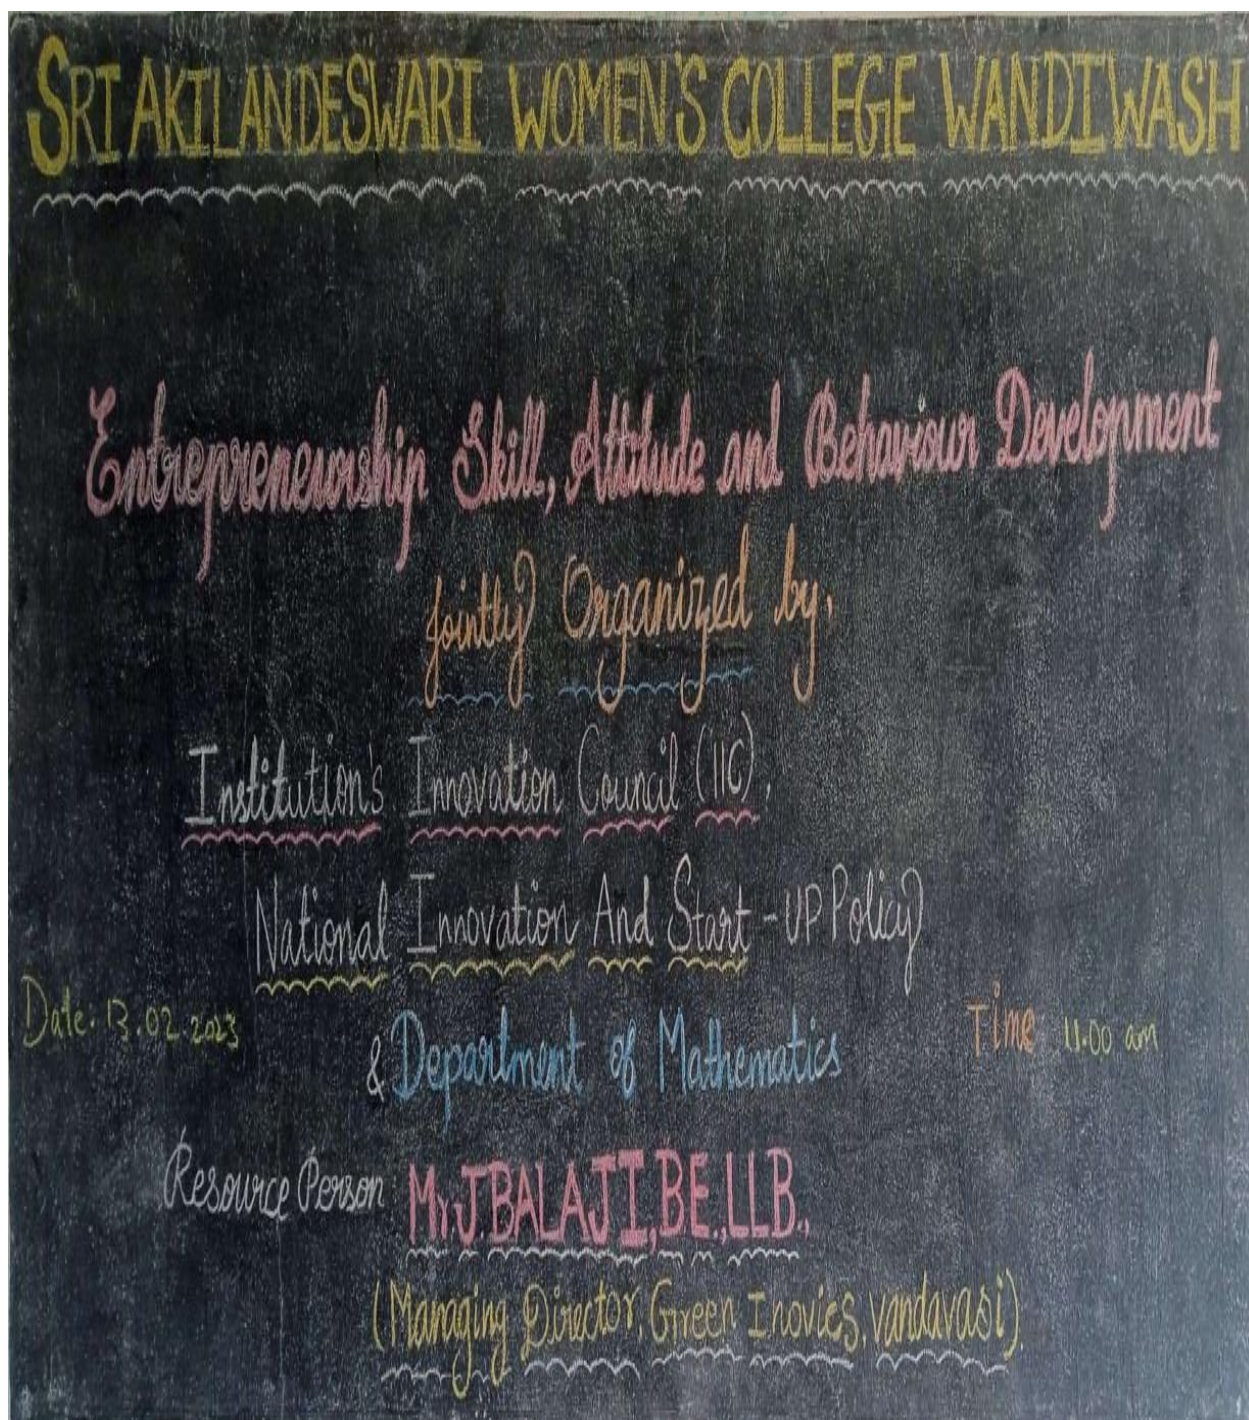 SRI AKILANDESWARI WOMEN'S COLLEGE WANDIWASH
Entrepreneurship Skill, Attitude and Behaviour Development
Jointly Organized by,
Institution's Innovation Council (IIC),
National Innovation And Start-UP Policy
Date: 13.02.2023
& Department of Mathematics
Time 11.00 am
Resource Person: Mr.J.BALAJI,BE.,LLB.,
(Managing Director, Green Inovies, Vandavasi).